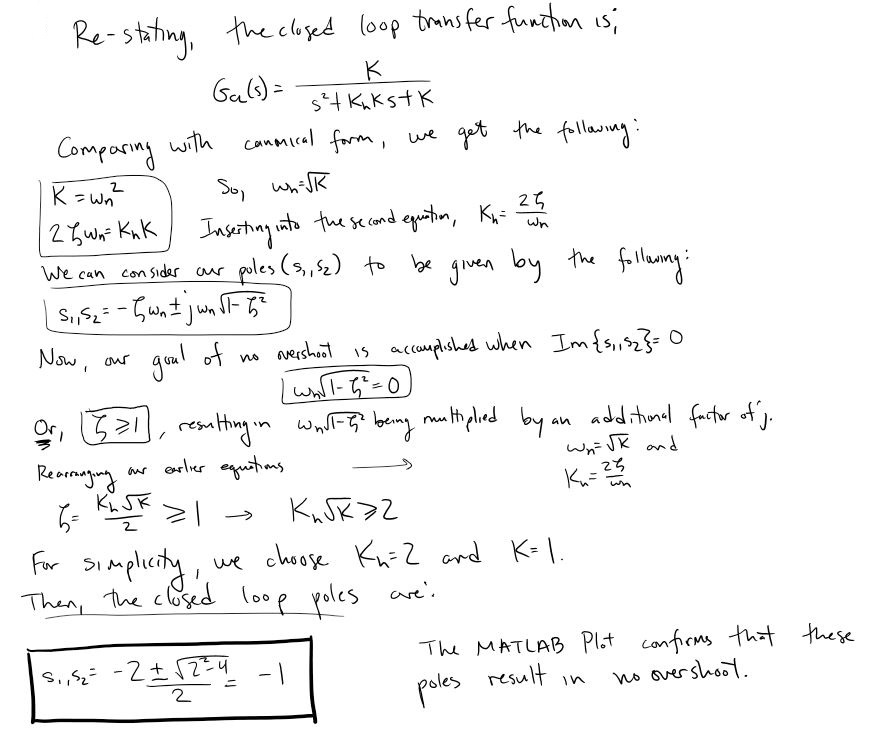 Re-stating, the closed loop transfer function is;
Gcl(s) = K / (s² + KhKs + K)
Comparing with canonical form, we get the following:
K = ωn² So, ωn = √K
2ζωn = KhK Inserting into the second equation, Kh = 2ζ/ωn
We can consider our poles (s₁,s₂) to be given by the following:
s₁,s₂ = -ζωn ± jωn√(1-ζ²)
Now, our goal of no overshoot is accomplished when Im{s₁,s₂} = 0
ωn√(1-ζ²) = 0
Or, ζ ≥ 1, resulting in ωn√(1-ζ²) being multiplied by an additional factor of j.
Rearranging our earlier equations → ωn = √K and
Kh = 2ζ/ωn
ζ = Kh√K/2 ≥ 1 → Kh√K ≥ 2
For simplicity, we choose Kh = 2 and K = 1.
Then, the closed loop poles are:
s₁,s₂ = (-2 ± √(2²-4))/2 = -1
The MATLAB Plot confirms that these
poles result in no overshoot.